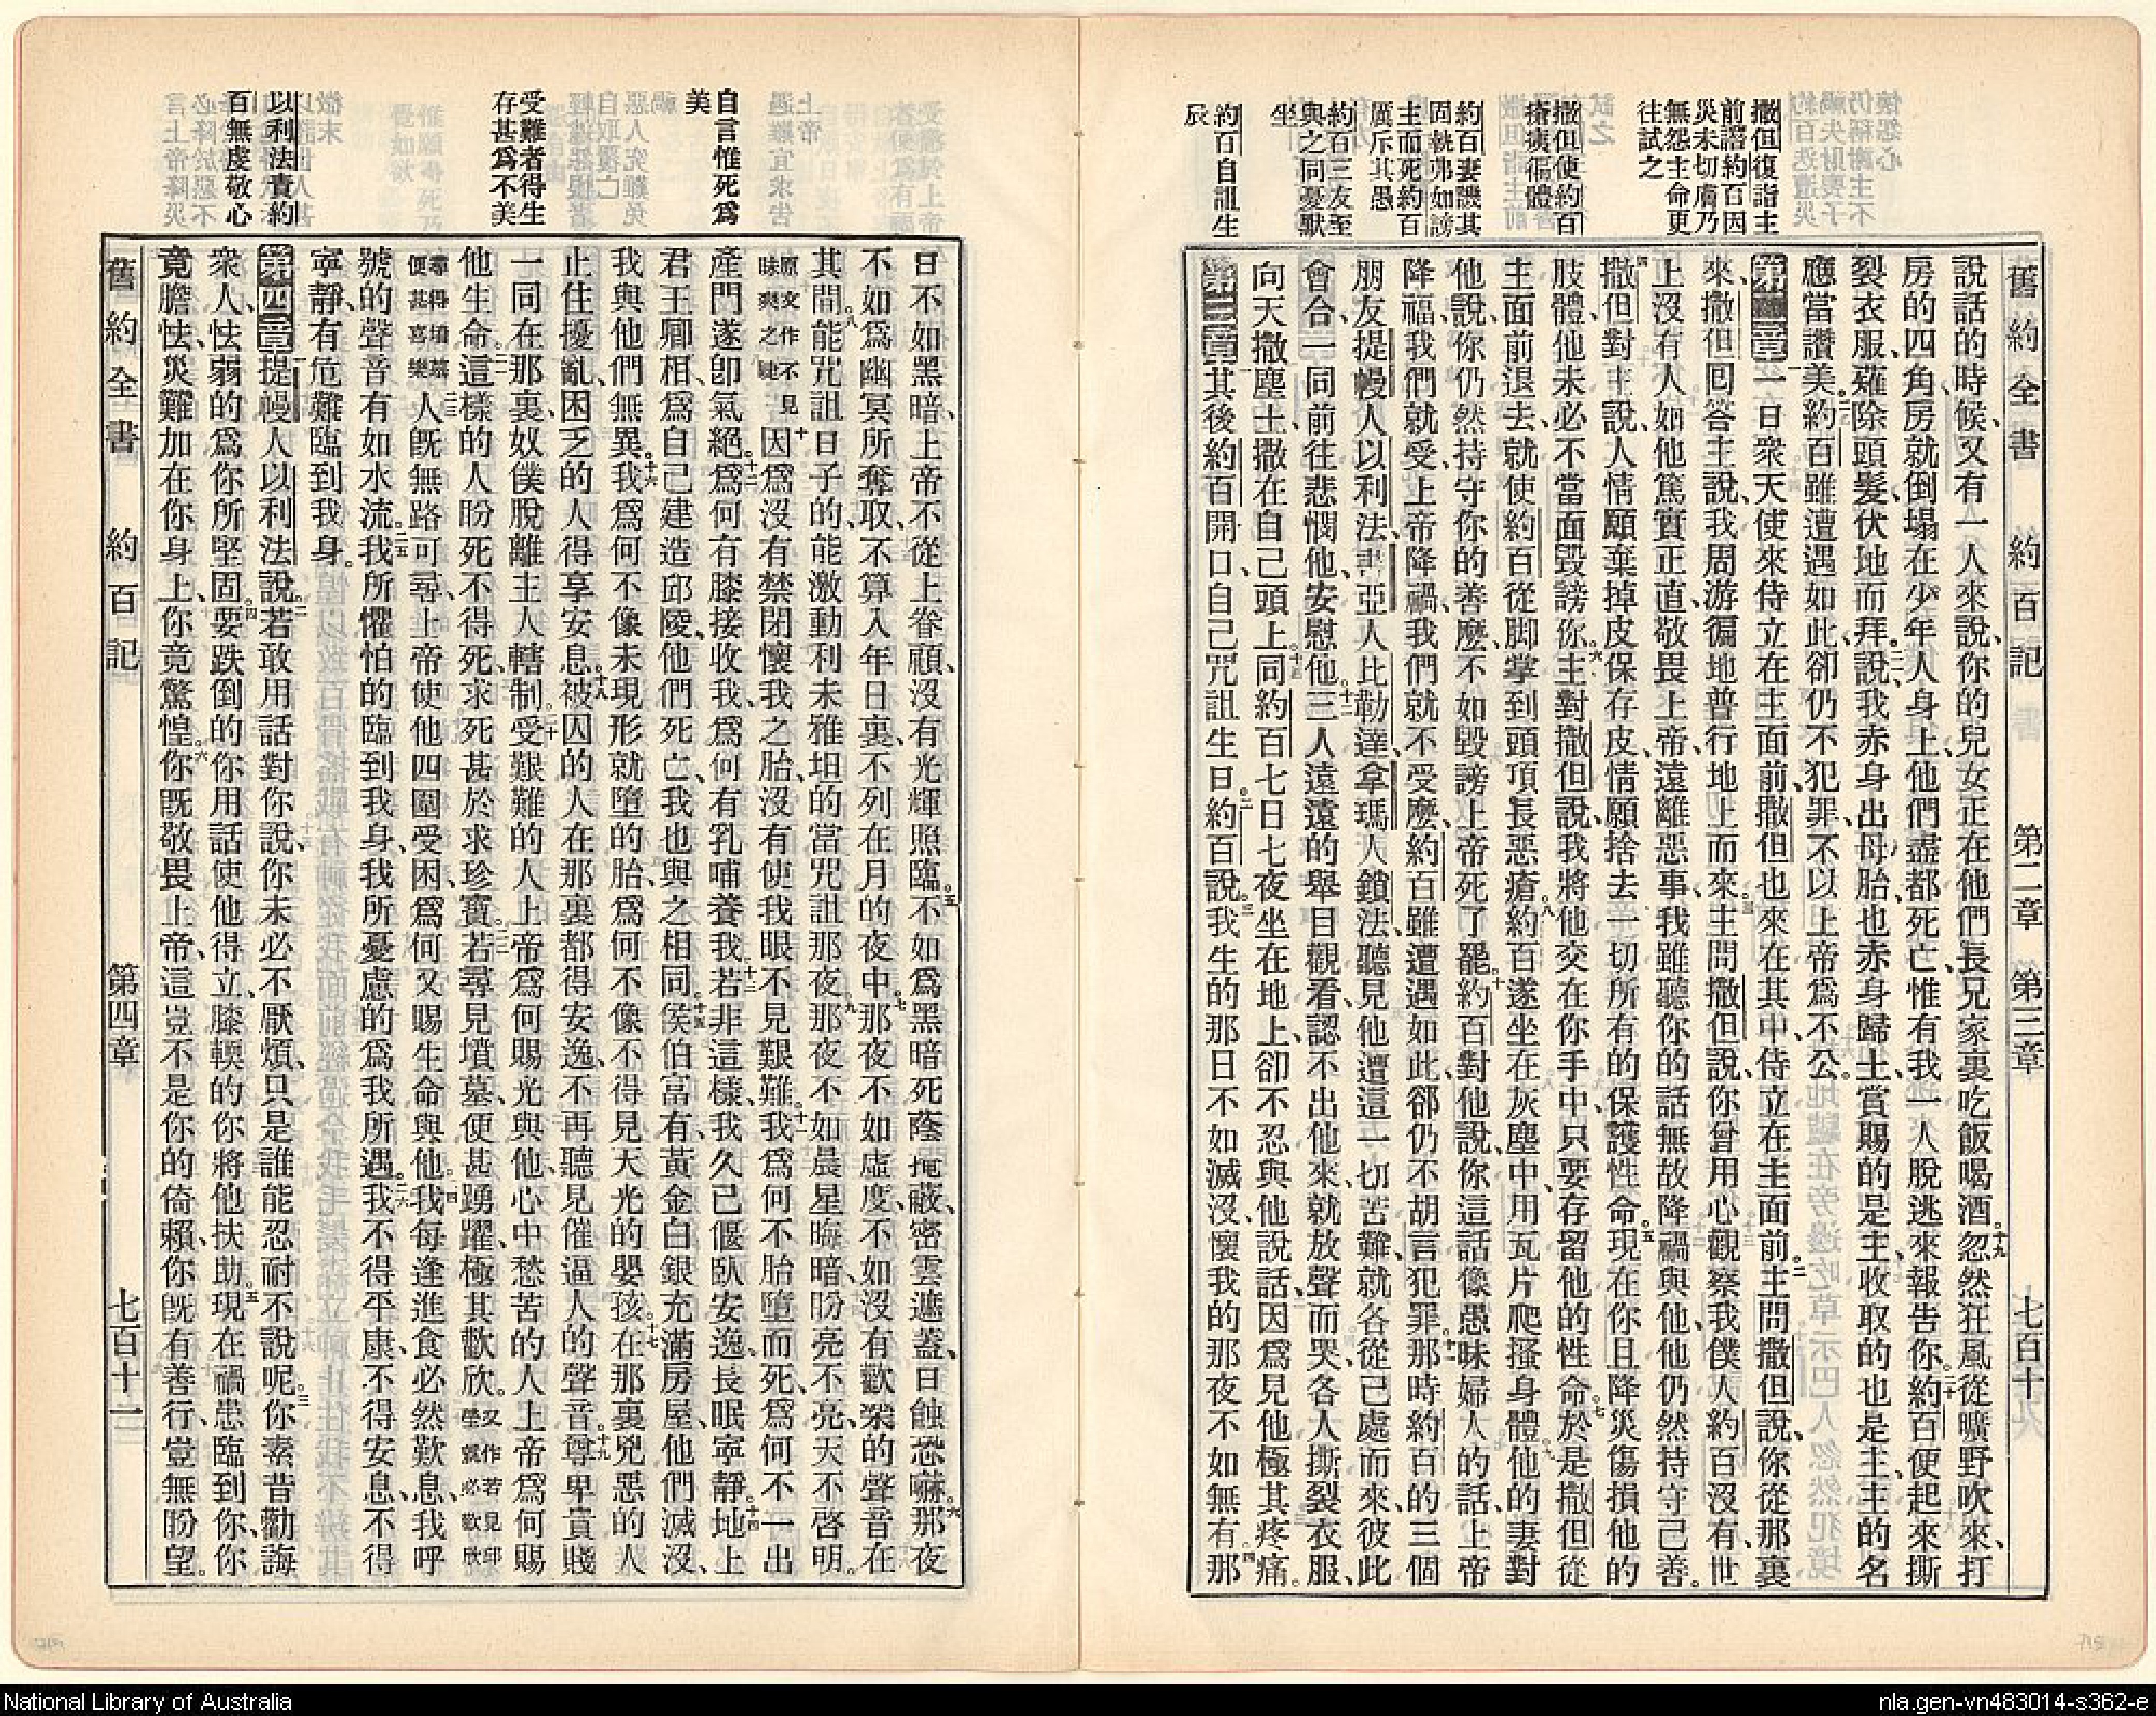 舊約全書 約百記 第二章 第三章 七百十
撒但復詣主
前譖約百因
災未切膚乃
無怨主命更
往試之
撒但使約百
瘡痍徧體
約百妻譏其
固執弗如謗
主而死約百
厲斥其愚
約百三友至
與之同憂默
坐
約百自詛生
辰
說話的時候、又有一人來說、你的兒女正在他們長兄家裏吃飯喝酒。十九忽然狂風從曠野吹來、打
房的四角、房就倒塌在少年人身上、他們盡都死亡、惟有我一人脫逃來報告你。二十約百便起來撕
裂衣服、薙除頭髮、伏地而拜。二一說我赤身出母胎、也赤身歸土、賞賜的是主、收取的也是主、主的名
應當讚美。二二約百雖遭遇如此、卻仍不犯罪、不以上帝爲不公。
第二章 一一日衆天使來侍立在主面前、撒但也來在其中、侍立在主面前。二主問撒但說、你從那裏
來、撒但囘答主說、我周游徧地普行地上而來。三主問撒但說、你曾用心觀察我僕人約百沒有、世
上沒有人如他篤實正直、敬畏上帝、遠離惡事、我雖聽你的話無故降禍與他、他仍然持守己善。
四撒但對主說、人情願棄掉皮保存皮、情願捨去一切所有的保護性命。五現在你且降災傷損他的
肢體、他未必不當面毀謗你。六主對撒但說、我將他交在你手中、只要存留他的性命。七於是撒但從
主面前退去、就使約百從脚掌到頭頂長惡瘡。八約百遂坐在灰塵中、用瓦片爬搔身體。九他的妻對
他說、你仍然持守你的善麽、不如毀謗上帝死了罷。十約百對他說、你這話像愚昧婦人的話、上帝
降福、我們就受、上帝降禍、我們就不受麽、約百雖遭遇如此、卻仍不胡言犯罪。十一那時約百的三個
朋友、提幔人以利法、書亞人比勒達、拿瑪人鎖法、聽見他遭這一切苦難、就各從己處而來、彼此
會合、一同前往悲憫他、安慰他。十二三人遠遠的舉目觀看、認不出他來、就放聲而哭、各人撕裂衣服、
向天撒塵土、撒在自己頭上。十三同約百七日七夜坐在地上、卻不忍與他說話、因爲見他極其疼痛。
第三章 一其後約百開口、自己咒詛生日。二約百說。三我生的那日不如滅沒、懷我的那夜不如無有。四那
自言惟死爲
美
受難者得生
存甚爲不美
以利法責約
百無虔敬心
日不如黑暗、上帝不從上眷顧、沒有光輝照臨。五不如爲黑暗死蔭掩蔽、密雲遮蓋、日蝕恐嚇。六那夜
不如爲幽冥所奪取、不算入年日裏、不列在月的夜中。七那夜不如虛度、不如沒有歡樂的聲音在
其間。八能咒詛日子的、能激動利未雅坦的、當咒詛那夜。九那夜不如晨星晦暗、盼亮不亮、天不啓明。
原文作不見昧爽之睫 十因爲沒有禁閉懷我之胎、沒有使我眼不見艱難。十一我爲何不胎墮而死、爲何不一出
產門遂卽氣絕。十二爲何有膝接收我、爲何有乳哺養我。十三若非這樣、我久已偃臥安逸、長眠寧靜。十四地上
君王卿相、爲自己建造邱陵、他們死亡、我也與之相同。十五侯伯富有黃金、白銀充滿房屋、他們滅沒、
我與他們無異。十六我爲何不像未現形就墮的胎、爲何不像不得見天光的嬰孩。十七在那裏兇惡的人
止住擾亂、困乏的人得享安息。十八被囚的人在那裏都得安逸、不再聽見催逼人的聲音。十九尊卑貴賤
一同在那裏、奴僕脫離主人轄制。二十受艱難的人、上帝爲何賜光與他、心中愁苦的人、上帝爲何賜
他生命。二一這樣的人盼死不得死、求死甚於求珍寶。二二若尋見墳墓、便甚踴躍、極其歡欣。又作若見邱塋就必歡欣
尋得墳墓便甚喜樂 二三人旣無路可尋、上帝使他四圍受困、爲何又賜生命與他。二四我每逢進食必然歎息、我呼
號的聲音有如水流。二五我所懼怕的臨到我身、我所憂慮的爲我所遇。二六我不得平康、不得安息、不得
寧靜、有危難臨到我身。
第四章 一提幔人以利法說。二若敢用話對你說、你未必不厭煩、只是誰能忍耐不說呢。三你素昔勸誨
衆人、怯弱的爲你所堅固。四要跌倒的你用話使他得立、膝輭的你將他扶助。五現在禍患臨到你、你
竟膽怯、災難加在你身上、你竟驚惶。六你旣敬畏上帝、這豈不是你的倚賴、你旣有善行、豈無盼望。
舊約全書 約百記 第四章 七百十一
National Library of Australia
nla.gen-vn483014-s362-e